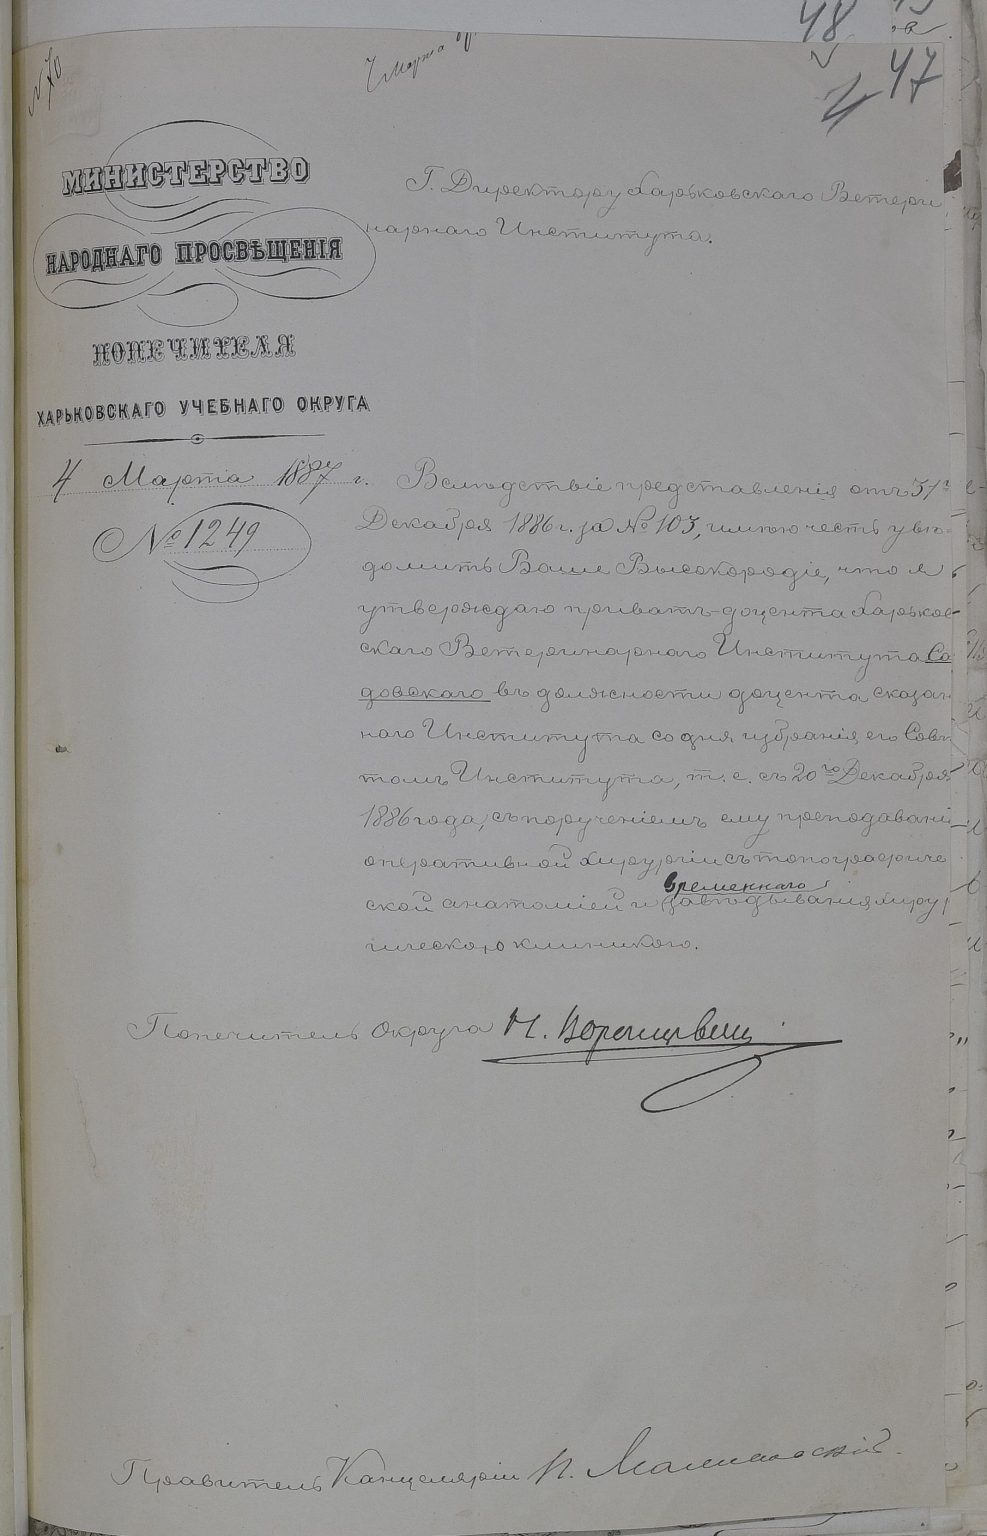 48
47
№ 70
7 Марта
МИНИСТЕРСТВО
НАРОДНАГО ПРОСВѢЩЕНІЯ
ПОПЕЧИТЕЛЯ
ХАРЬКОВСКАГО УЧЕБНАГО ОКРУГА
4 Марта 1887 г.
№ 1249
Г. Директору Харьковскаго Ветери
нарнаго Института.
Вслѣдствіе представленія отъ 31го
Декабря 1886 г. за № 103, имѣю честь увѣ-
домить Ваше Высокородіе, что я
утверждаю приватъ-доцента Харьков-
скаго Ветеринарнаго Института Са
довскаго въ должности доцента сказан
наго Института со дня избранія его Совѣ
томъ Института, т. е. съ 20го Декабря
1886 года, съ порученіемъ ему преподаванія
оперативной хирургіи съ топографиче
временнаго
ской анатоміей и завѣдыванія хирур
гическою клиникою.
Попечитель Округа Н. Воронцовъ
Правитель Канцеляріи